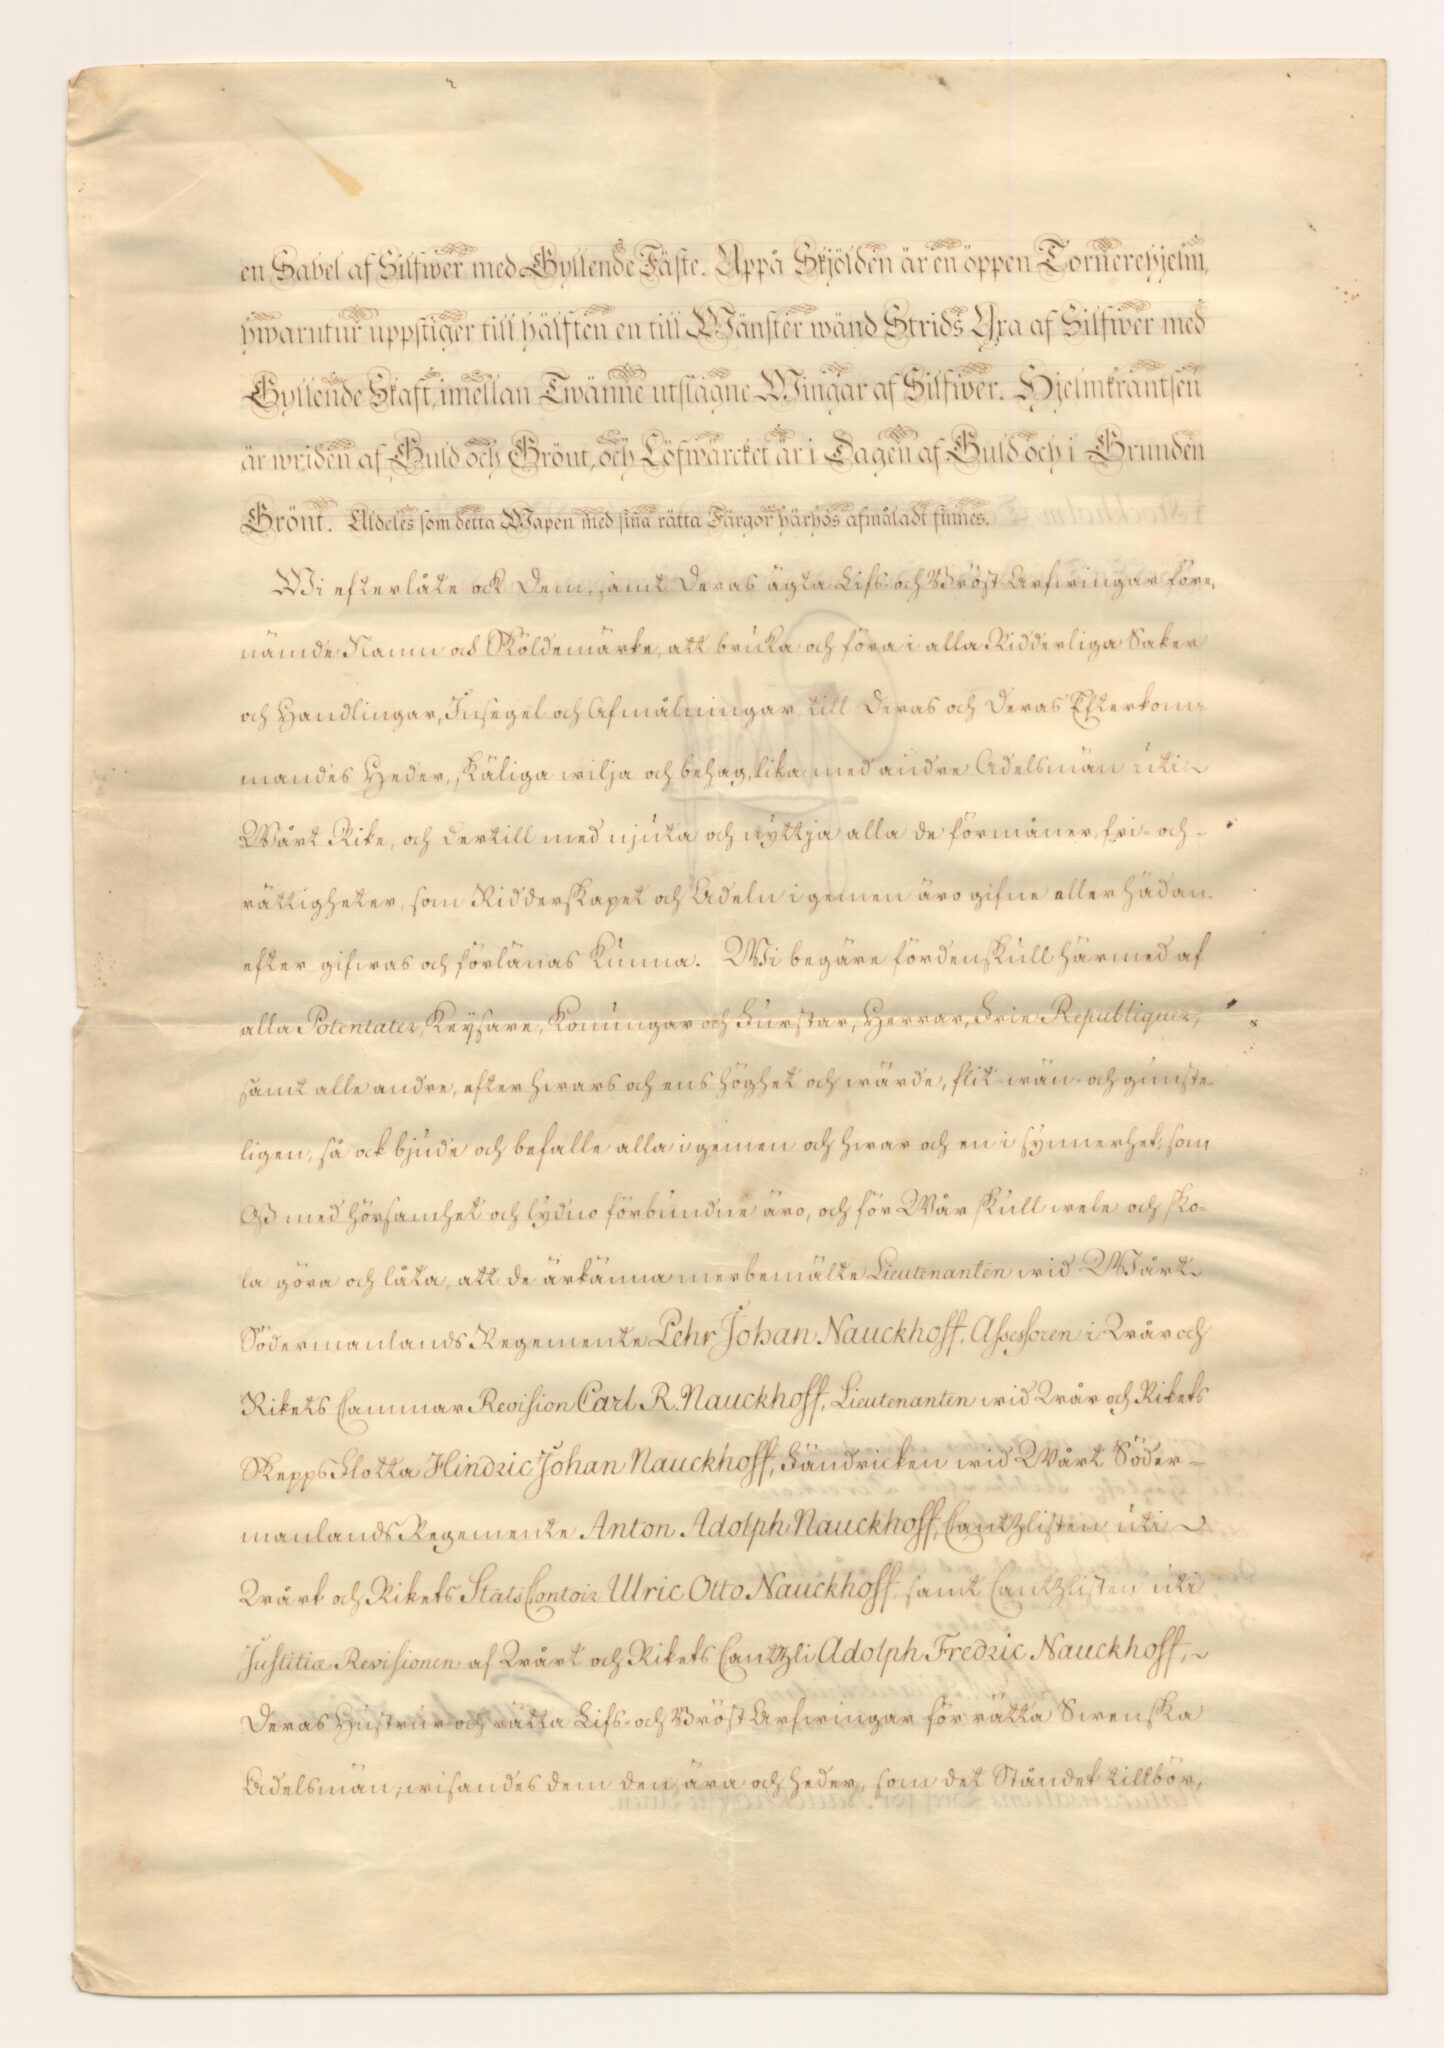 en Sabel af Silfwer med Gyllende Fäste. Uppå Skjölden är en öppen Tornerehjelm,
hwarutur uppstiger till hälften en till Wänster wänd Strids Yxa af Silfwer med
Gyllende Skaft, imellan Twänne utslagne Wingar af Silfwer. Hjelmkrantsen
är wriden af Guld och Grönt, och Löfwärcket är i Dagen af Guld och i Grunden
Grönt. Aldeles som detta Wapen med sina rätta Färgor härhos afmåladt finnes.
Wi efterlåte ock Dem, samt Deras ägta Lifs- och Bröst Arfwingar före-
nämde Namn och Sköldemärke, att bruka och föra i alla Ridderliga Saker
och Handlingar, Insegel och Afmålningar, till Deras och Deras Efterkom=
mandes Heder, skäliga wilja och behag, lika med andre Adelsmän uti
Wårt Rike, och dertill med njuta och nyttja alla de förmåner, fri- och-
rättigheter, som Ridderskapet och Adeln i gemen äro gifne eller hädan-
efter gifwas och förlänas kunna. Wi begäre fördenskull härmed af
alla Potentater, Keysare, Konungar och Furstar, Herrar, Frie Republiquer,
samt alle andre, efter hwars och ens höghet och wärde, flit- wän- och gunste-
ligen, så ock bjude och befalle alla i gemen och hwar och en i synnerhet, som
Oß med hörsamhet och lydno förbundne äro, och för Wår skull wele och sko-
la göra och låta, att de ärkänna merbemälte Lieutenanten wid Wårt
Södermanlands Regemente Pehr Johan Nauckhoff, Assessoren i Wår och
Rikets Cammar Revision Carl R. Nauckhoff, Lieutenanten wid Wår och Rikets
Skepps Flotta Hindric Johan Nauckhoff, Fändricken wid Wårt Söder-
manlands Regemente Anton Adolph Nauckhoff, Cantzlisten uti
Wårt och Rikets Stats Contoir Ulric Otto Nauckhoff, samt Cantzlisten uti
Justitiæ Revisionen af Wårt och Rikets Cantzli Adolph Fredric Nauckhoff,
Deras Hustrur och rätta Lifs- och Bröst Arfwingar för rätta Swenska
Adelsmän; wisandes dem den ära och heder, som det Ståndet tillbör,